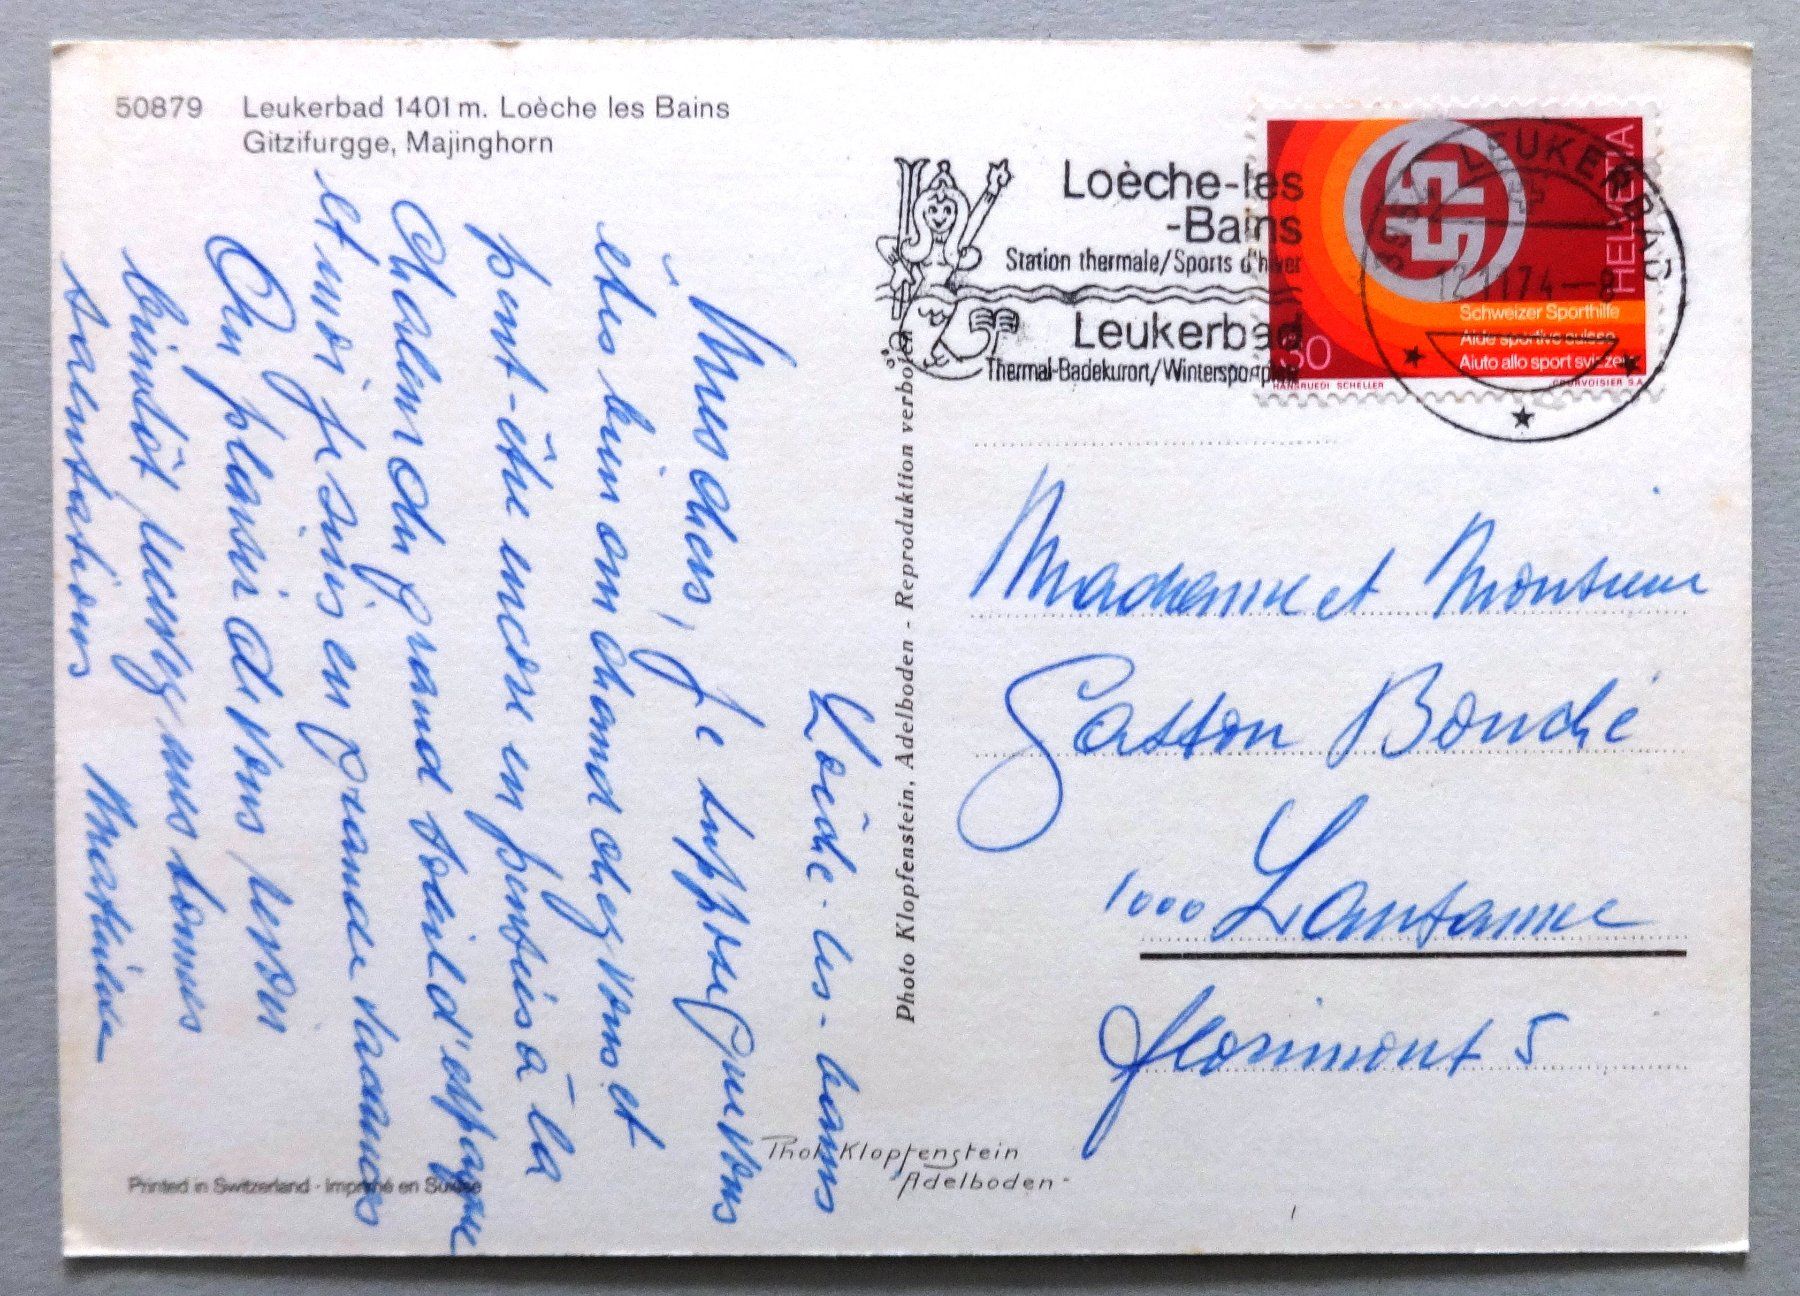 50879 Leukerbad 1401 m. Loèche les Bains
Gitzifurgge, Majinghorn
Loèche-les-bains
Mes chers, Je suppose que vous
êtes bien au chaud chez vous et
peut-être encore en pensées à la
chaleur du grand soleil d'espagne
et moi je suis en grande vacances
Au plaisir de vous revoir
bientôt recevez mes bonnes
salutations Mathilde
Printed in Switzerland · Imprimé en Suisse
Photo Klopfenstein, Adelboden - Reproduktion verboten
Phot. Klopfenstein
Adelboden
Loèche-les
-Bains
Station thermale/Sports d'hiver
Leukerbad
Thermal-Badekurort/Wintersportplatz
3954 LEUKERBAD
12.11.74-8
HELVETIA
Schweizer Sporthilfe
Aide sportive suisse
Aiuto allo sport svizzero
30
HANSRUEDI SCHELLER COURVOISIER S.A.
Madame et Monsieur
Gaston Bouché
1000 Lausanne
florimont 5